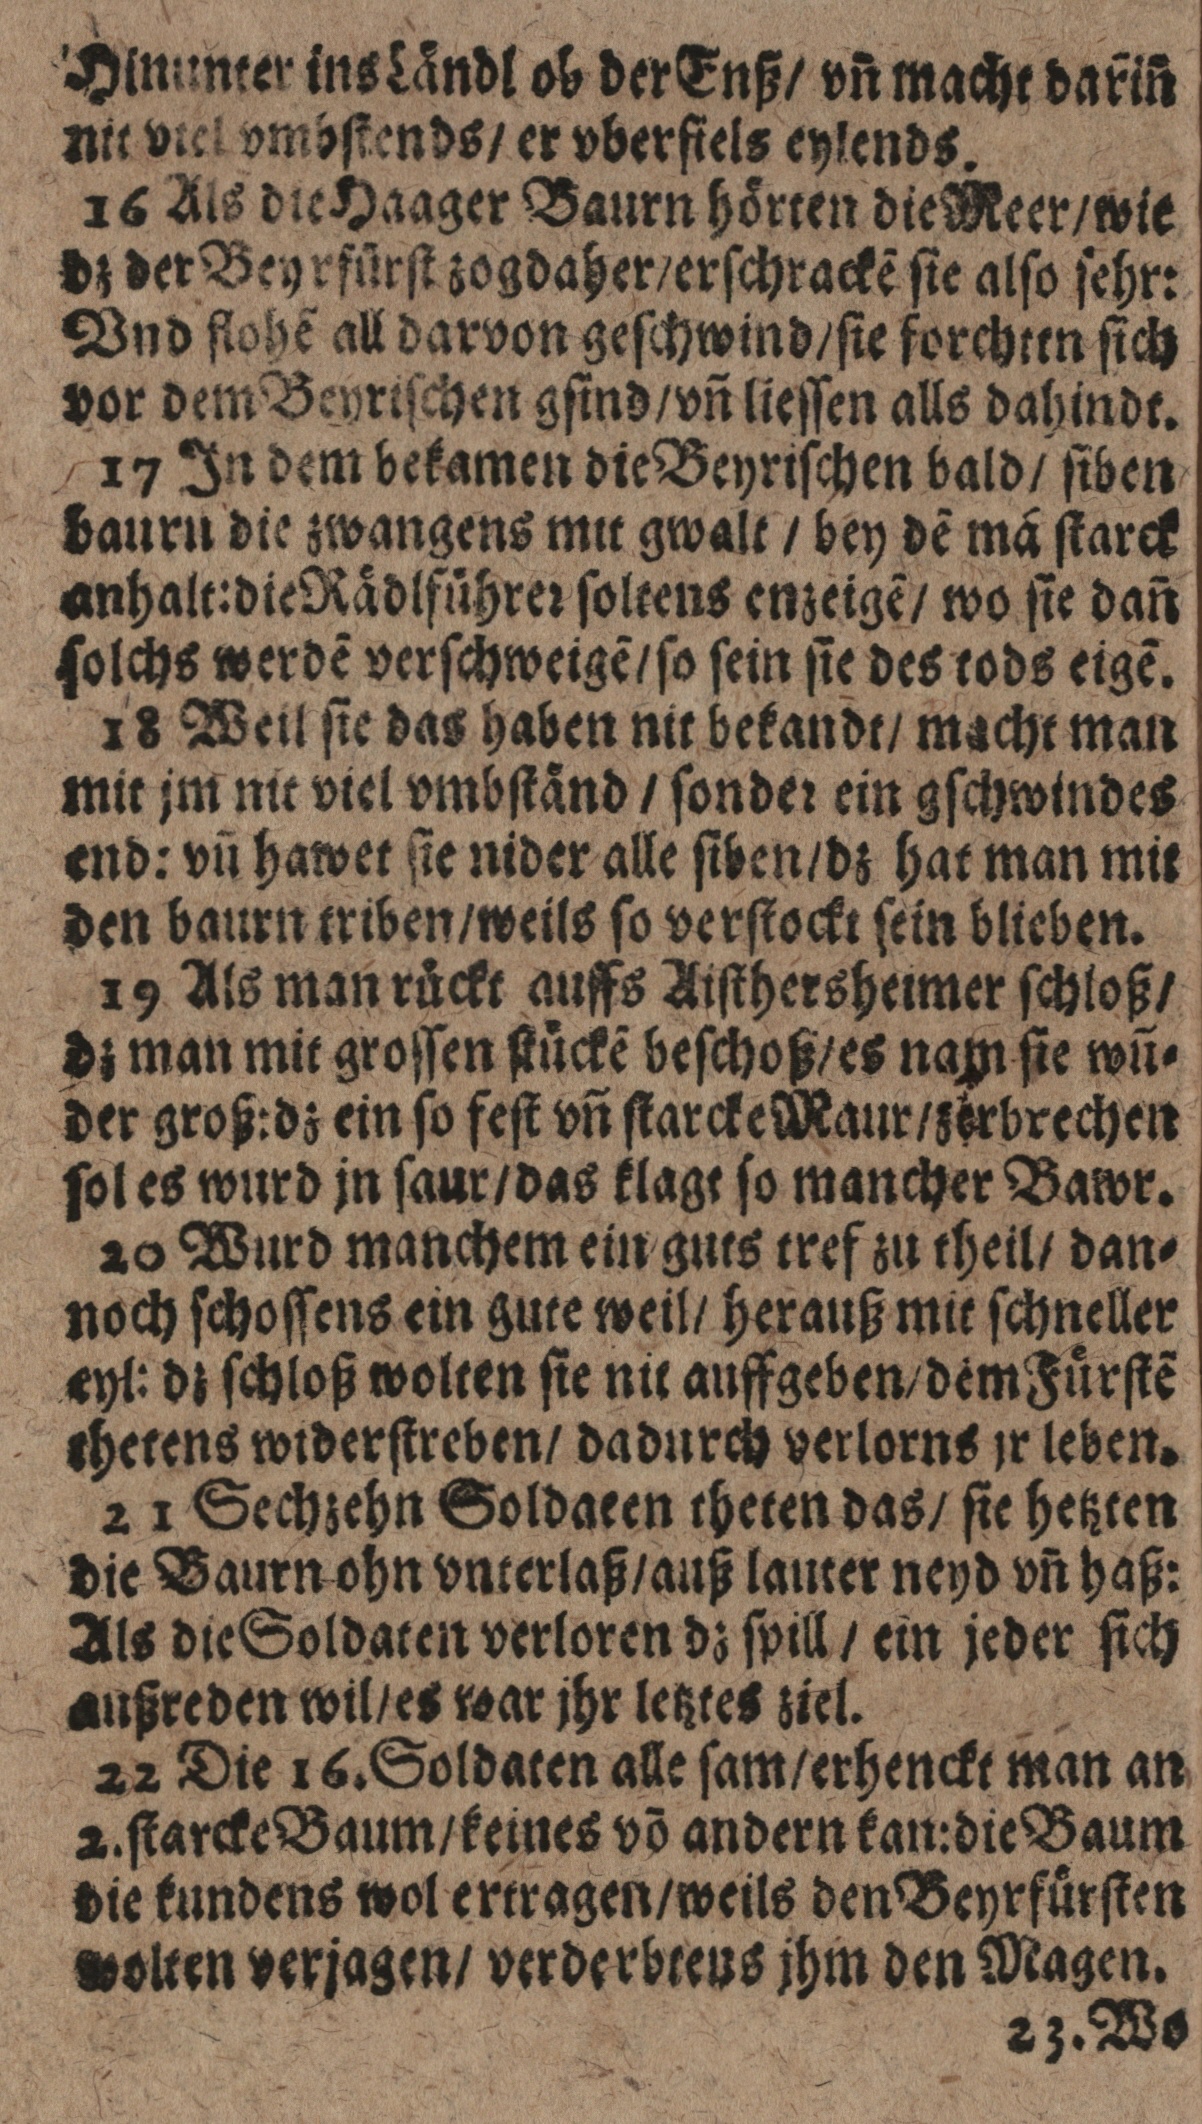 Hinunter ins Laͤndl ob der Enß/ vñ macht dariñ
nit viel vmbstends/ er vberfiels eylends.
16 Als die Haager Baurn hoͤrten die Meer/wie
dz der Beyrfuͤrst zog daher/erschrackẽ sie also sehr:
Vnd flohẽ all darvon geschwind/sie forchten sich
vor dem Beyrischen gsind/vñ liessen alls dahindt.
17 In dem bekamen die Beyrischen bald/ siben
baurn die zwangens mit gwalt / bey dẽ mã starck
anhalt:die Raͤdlfuͤhrer soltens enzeigẽ/ wo sie dañ
solchs werdẽ verschweigẽ/so sein sie des tods eigẽ.
18 Weil sie das haben nit bekandt/ macht man
mit jm nit viel vmbstaͤnd / sonder ein gschwindes
end: vñ hawet sie nider alle siben/dz hat man mit
den baurn triben/weils so verstockt sein blieben.
19 Als man ruͤckt auffs Aisthersheimer schloß/
dz man mit grossen stuͤckẽ beschoß/es nam sie wũ-
der groß:dz ein so fest vñ starcke Maur/zerbrechen
sol es wurd jn saur/das klagt so mancher Bawr.
20 Wurd manchem ein guts tref zu theil/ dan-
noch schossens ein gute weil/ herauß mit schneller
eyl: dz schloß wolten sie nit auffgeben/dem Fuͤrstẽ
thetens widerstreben/ dadurch verlorns jr leben.
21 Sechzehn Soldaten theten das/ sie hetzten
die Baurn ohn vnterlaß/auß lauter neyd vñ haß:
Als die Soldaten verloren dz spill / ein jeder sich
außreden wil/es war jhr letztes ziel.
22 Die 16. Soldaten alle sam/erhenckt man an
2. starcke Baum/keines võ andern kan:die Baum
die kundens wol ertragen/weils den Beyrfuͤrsten
wolten verjagen/ verderbtens jhm den Magen.
23. Wo